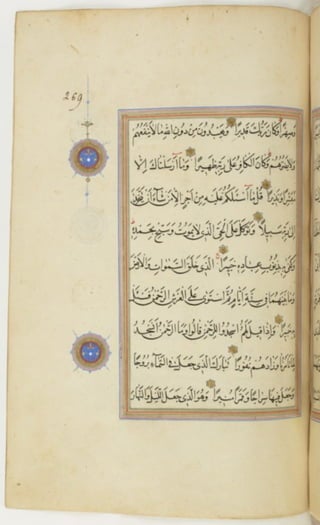 269
وصهرا وكان ربك قديرا ويعبدون من دون الله ما لا ينفعهم
ولا يضرهم وكان الكافر على ربه ظهيرا وما أرسلناك إلا
مبشرا ونذيرا قل ما أسئلكم عليه من أجر إلا من شاء أن يتخذ
إلى ربه سبيلا وتوكل على الحي الذي لا يموت وسبح بحمده
وكفى به بذنوب عباده خبيرا الذي خلق السموات والأرض
وما بينهما في ستة أيام ثم استوى على العرش الرحمن فسئل
به خبيرا وإذا قيل لهم اسجدوا للرحمن قالوا وما الرحمن أنسجد
لما تأمرنا وزادهم نفورا تبارك الذي جعل في السماء بروجا
وجعل فيها سراجا وقمرا منيرا وهو الذي جعل الليل والنهار